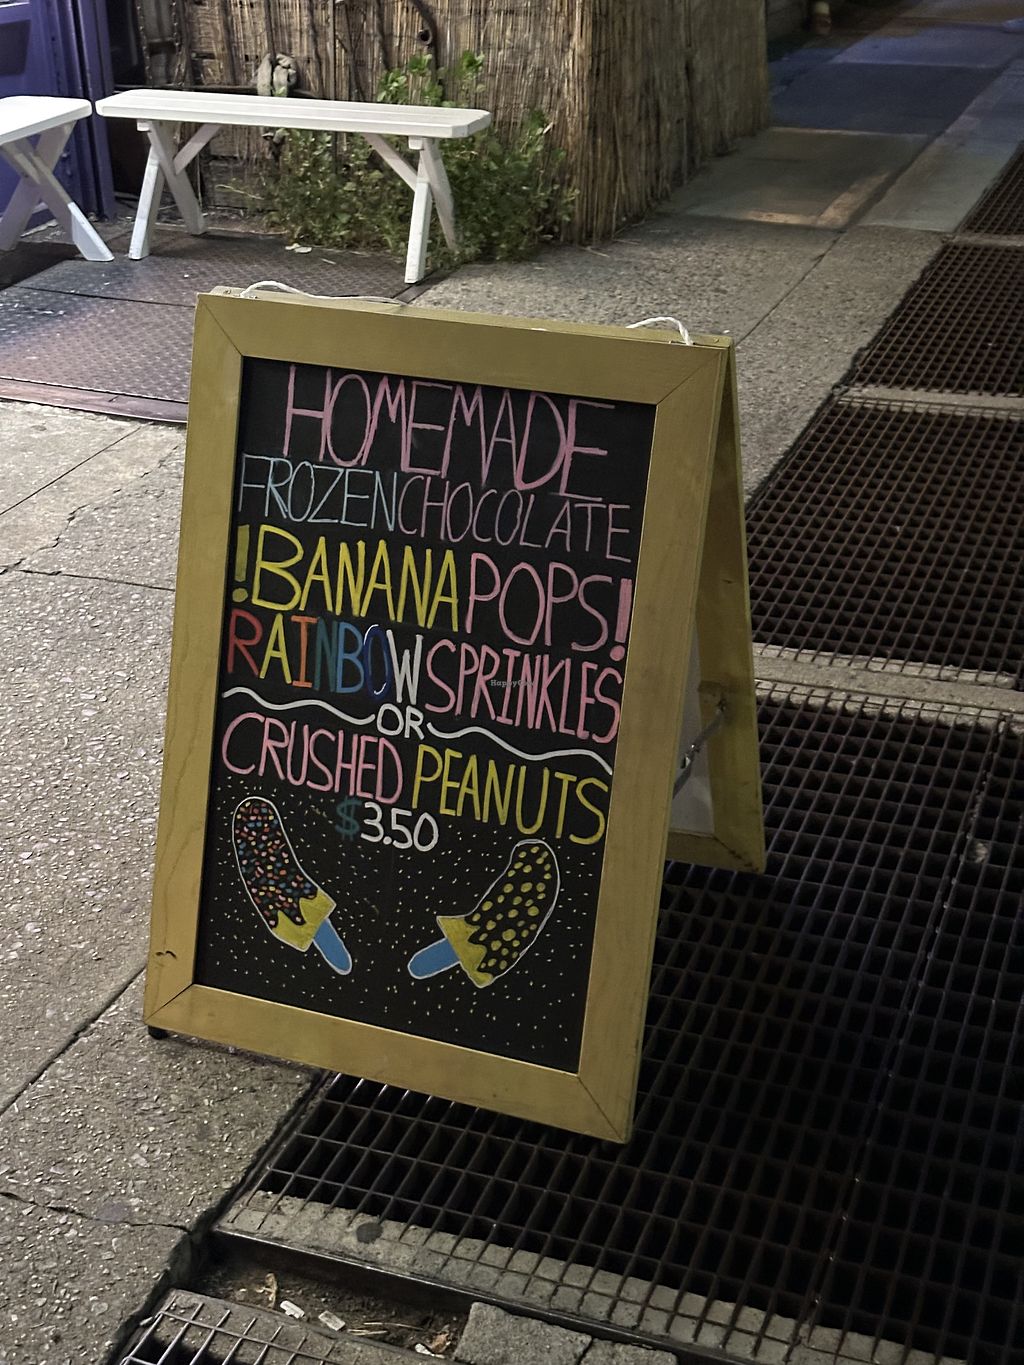 HOMEMADE
FROZEN CHOCOLATE
!BANANA POPS!
RAINBOW SPRINKLES
OR
CRUSHED PEANUTS
$3.50
HappyCow